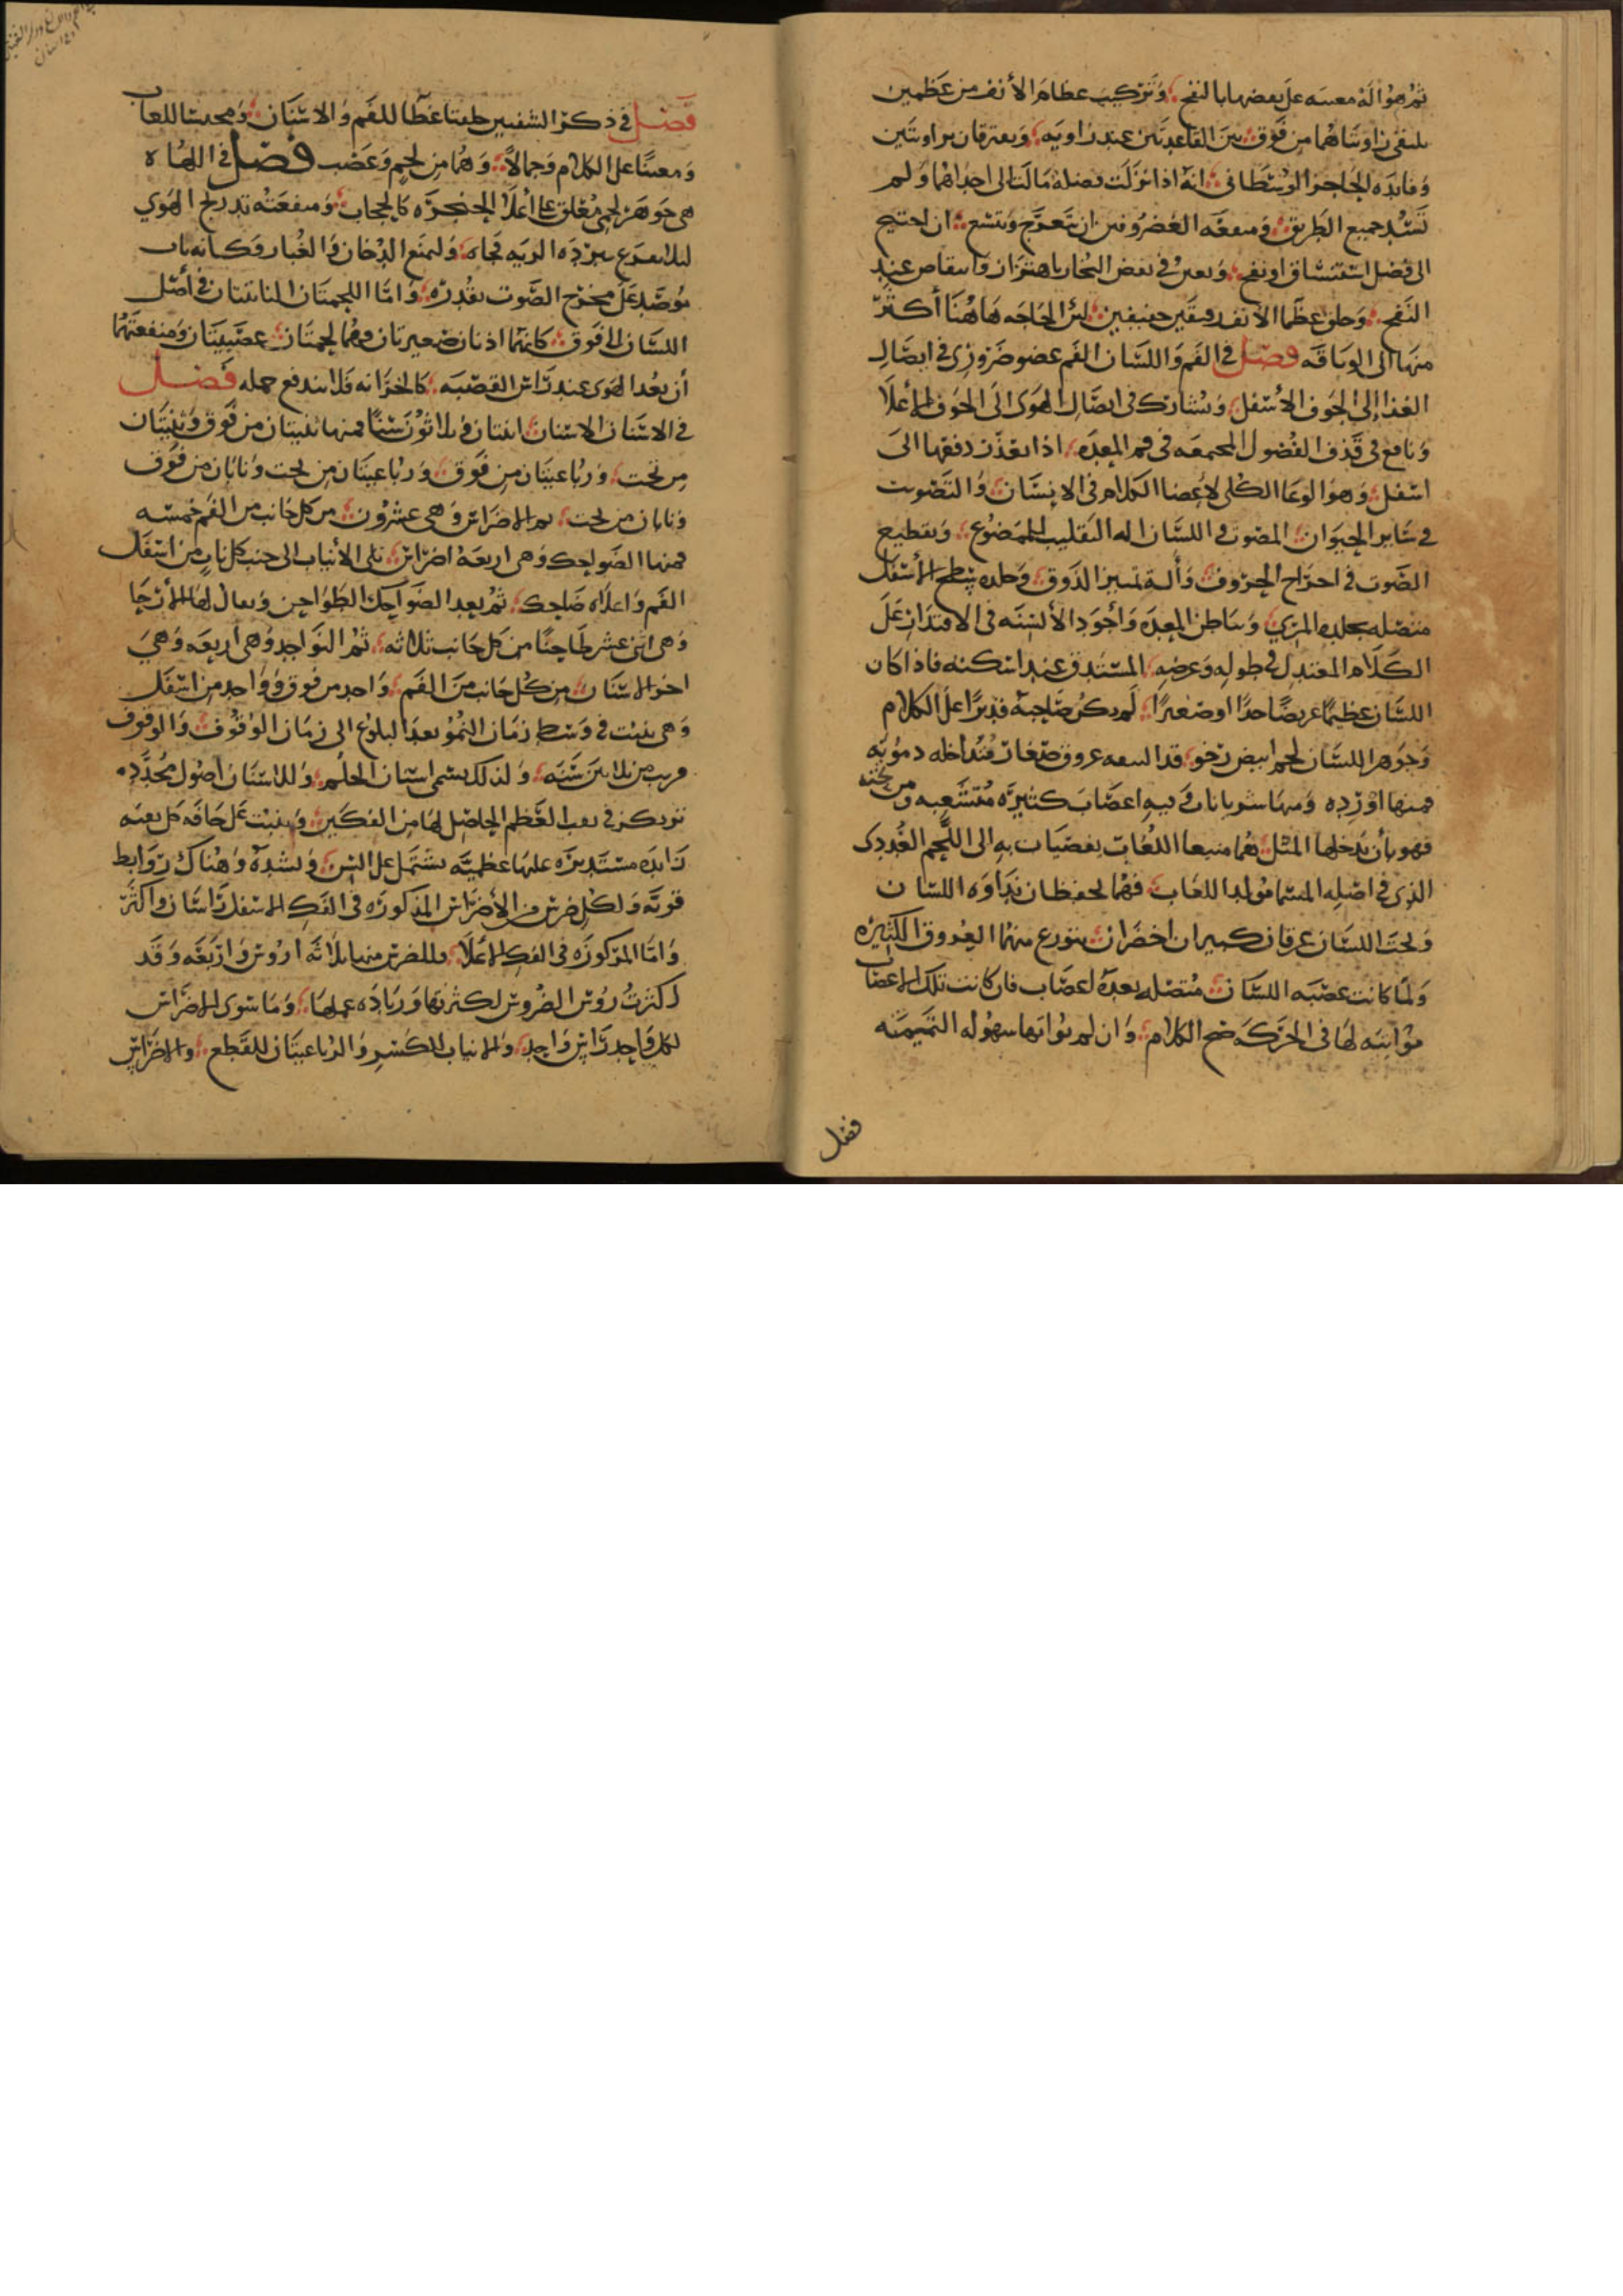 ثم هو اله معينه على بعضها بالنفخ وتركيب عظام الأنف من عظمين
يلتقى زاويتاهما من فوق بين القاعدتين عند زاويه ويفترقان بزاويتين
وفايده الحاجز الوسطانى انه اذا نزلت فضلة مالت الى احداهما ولم
تسد جميع الطريق ومنفعه الغضروفين ان تتعرج وتتسع ان احتيج
الى فضل استنشاق او نفخ وتعين فى نفض البخار باهتزاز وانتقاص عند
النفخ وخلق عظما الأنف دقيقين خفيفين لئن الحاجه هاهنا أكثر
منها الى الوثاقه فصل فى الفم واللسان الفم عضو ضرورى فى ايصال
الغذا إلى الجوف الأسفل ويشارك فى ايصال الهوى الى الجوف الأعلا
ونافع فى قذف الفضول المجتمعه فى فم المعده اذا تعذر دفعها الى
اسفل وهو الوعا الكلى لأعضا الكلام فى الانسان والتصويت
فى ساير الحيوان المصوت واللسان اله التقليب الممضوغ وتقطيع
الصوت فى اخراج الحروف وألة تمييز الذوق وجلده سطح الأسفل
متصله بجلده المرى وباطن المعده وأجود الألسنه فى الاقتدار على
الكلام المعتدل فى طوله وعرضه المستدق عند اسلته فاذا كان
اللسان عظيما عريضا جدا او صغيرا لم يكن صاحبه قديرا على الكلام
وجوهر اللسان لحم ابيض رخو قد التفت عروق صغار متداخله دمويه
فمنها اورده ومنها شريانات وفيه اعصاب كثيره متشعبه ومن تحته
فوهتان يدخلهما الميل هما منبعا اللعاب يفضيان به الى اللحم الغددى
الذى فى اصله المسما مولد اللعاب فهما يحفظان نداوه اللسان
وتحت اللسان عرقان كبيران اخضران يتوزع منهما العروق الكثيره
ولما كانت عضبه اللسان متصله بعده اعصاب فان كانت تلك الاعصاب
مؤاتيه لها فى الحركه صح الكلام وان لم تواتها سهوله التميمته
فصل
فصل فى ذكر الشفتين خلقتا غطا للفم والاسنان ومحبسا للعاب
ومعينا على الكلام وجمالا وهما من لحم وعصب فصل فى اللهاه
هى جوهر لحمى معلق على اعلا الحنجره كالحجاب ومنفعته تدريج الهوى
ليلا يقرع ببرده الريه فجاه وليمنع الدخان والغبار وكانه باب
موصد على مخرج الصوت بقدره واما اللحمتان الناتئتان فى أصل
اللسان الى فوق كانهما اذنان صغيرتان وهما لحمتان عصبيتان ومنفعتهما
أن يعدا الهوى عند راس القصبه كالخزانه فلا يندفع جمله فصل
فى الاسنان الاسنان اثنتان وثلاثون سنا فمنها ثنيتان من فوق وثنيتان
من تحت ورباعيتان من فوق ورباعيتان من تحت ونابان من فوق
ونابان من تحت ثم الاضراس وهى عشرون من كل جانب من الفم خمسه
فمنها الضواحك وهى اربعه اضراس تلى الأنياب الى جنب كل ناب من اسفل
الفم واعلاه ضاحك ثم بعد الضواحك الطواحن ويقال لها الأرحا
وهى اثنى عشر طاحنا من كل جانب ثلاثه ثم النواجد وهى اربعه وهى
اخر الاسنان من كل جانب من الفم واحد من فوق وواحد من اسفل
وهى تنبت فى وسط زمان النمو بعد البلوغ الى زمان الوقوف والوقوف
قريب من ثلاثين سنه ولذلك يسمى اسنان الحلم وللاسنان اصول محدده
تتركز فى ثقب العظم الحاصل لها من الفكين وينبت على حافه كل ثقبه
زايده مستديره عليها عظميه تشتمل على السن وتشده وهناك روابط
قويه ولكل ضرس من الأضراس المذكوره فى الفك الاسفل راسان واكثر
واما المذكوره فى الفك الاعلا فللضرس منها ثلاثه اروس واربعه وقد
كثرت روس الضروس لكثرتها وزياده عملها وما سوى الاضراس
لكل واحد راس واحد والانياب للكسر والرباعيتان للقطع والاضراس